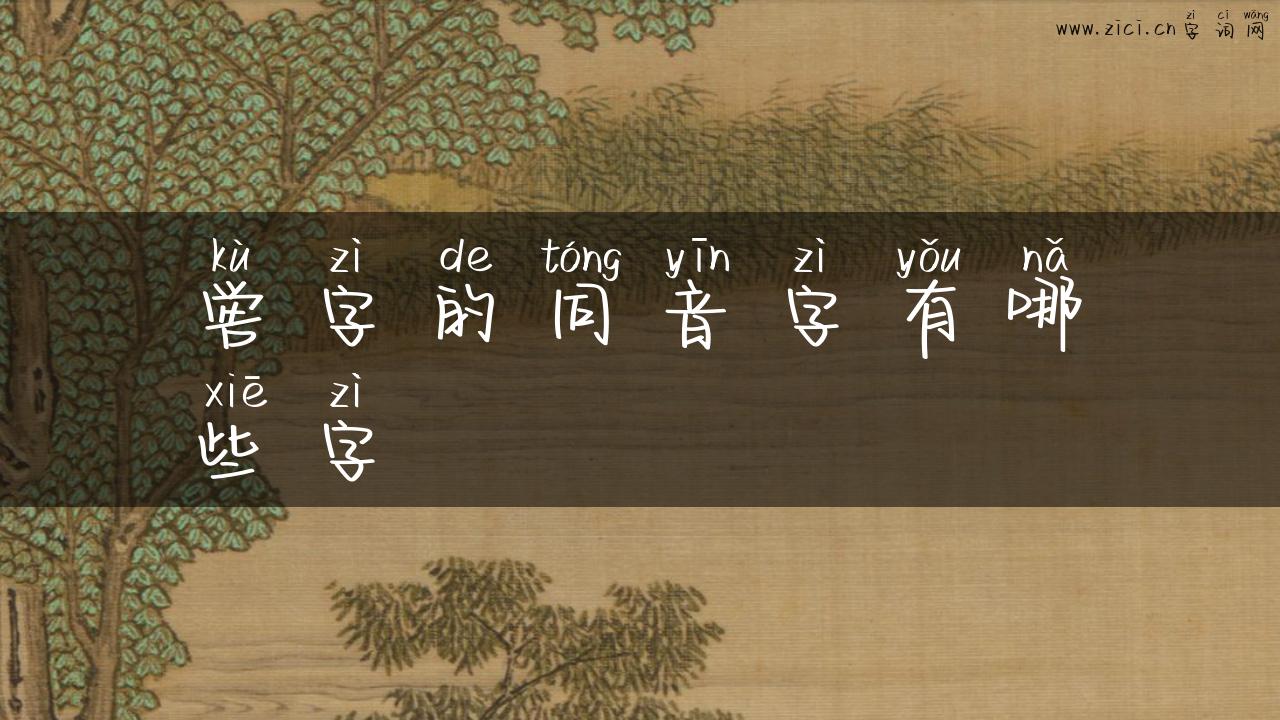 zì cí wǎng
www.zici.cn字词网
kù zì de tóng yīn zì yǒu nǎ
喾字的同音字有哪
xiē zì
些字